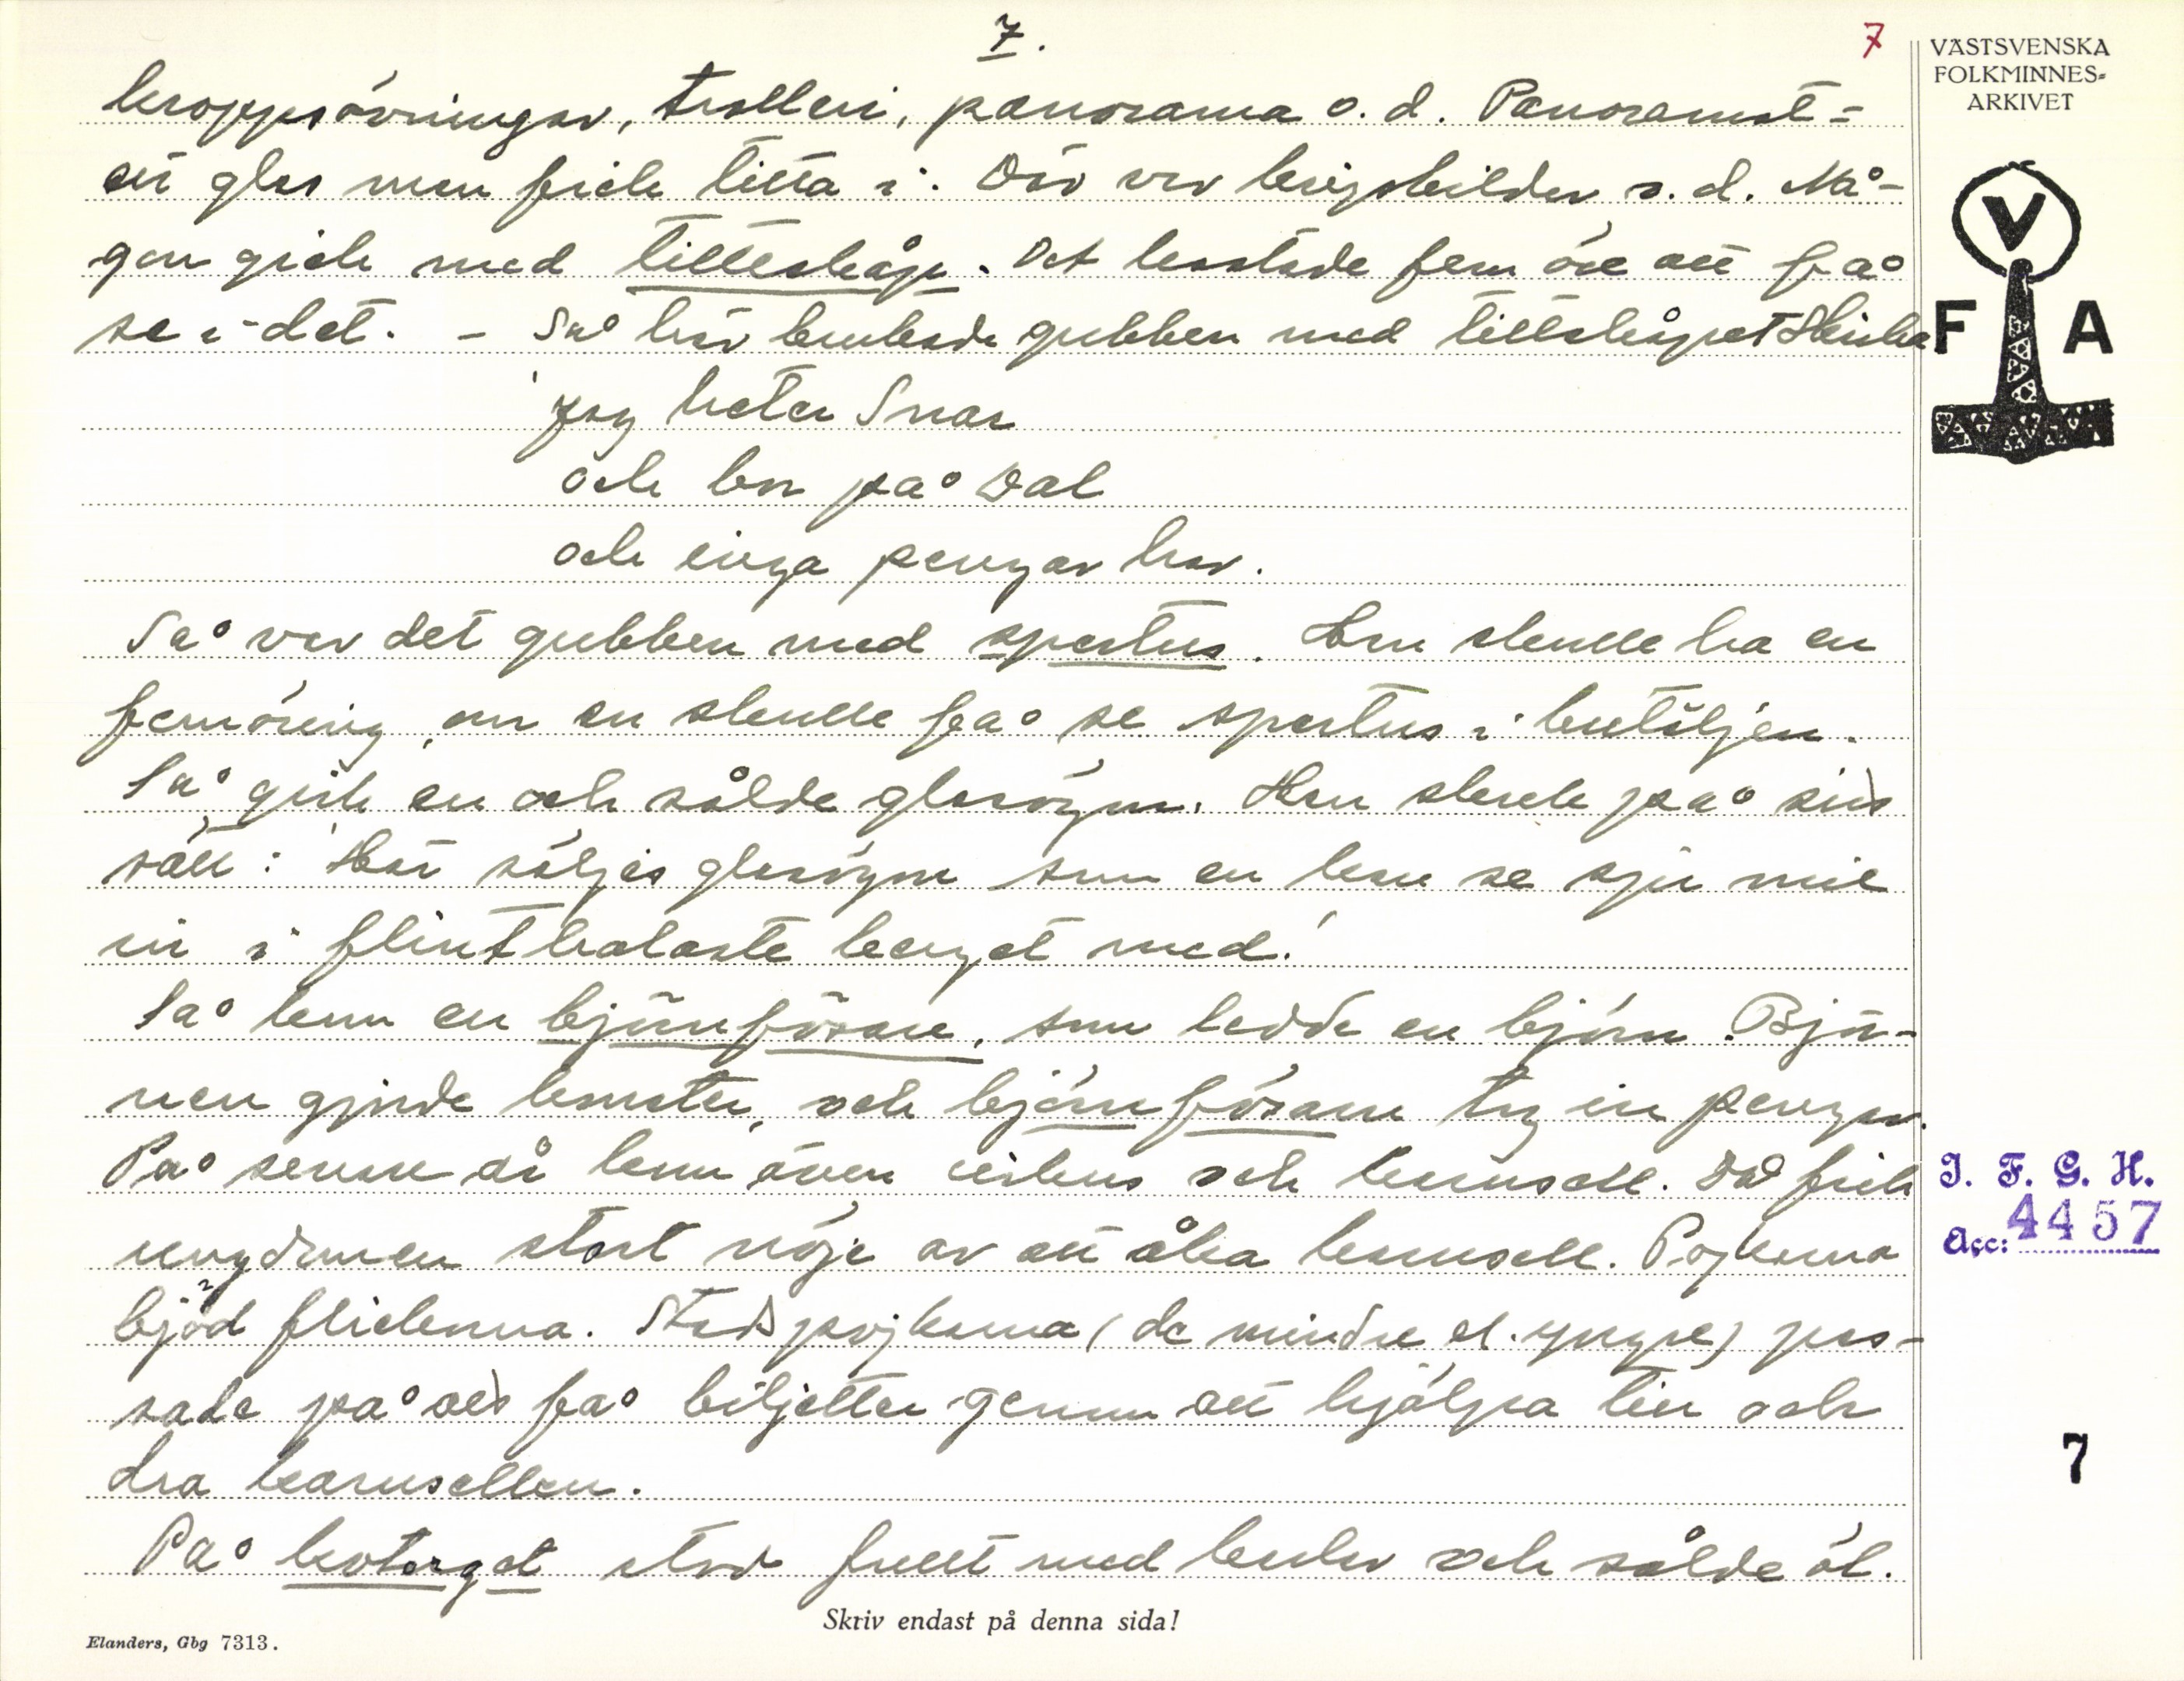 7.
7
VÄSTSVENSKA
FOLKMINNES-
ARKIVET
V
F A
kroppsövningar, trolleri, panorama o.d. Panoramat =
ett glas man fick titta i. Där var krigsbilder o.d. Nå-
gon gick med titteskåp. Det kostade fem öre att få
se i det. – Så här brukade gubben med tittskåpet skrika
'Jag heter Snar
och bor på Dal
och inga pengar har.
Så var det gubben med spertus. Han skulle ha en
femöring, om en skulle få se spertus i butäljen.
Så gick en och sålde glasögon. Han skrek på sitt
sätt: 'Här säljes glasögon som en kan se sju mil
in i flinthalaste berget med.'
Så kom en björnförare, som ledde en björn. Björ-
nen gjorde konster, och björnföraren tog in pengar.
På senare år kom även cirkus och karusell. Då fick
ungdomen stort nöje av att åka karusell. Pojkarna
bjöd flickorna. Stadspojkarna (de mindre el. yngre) pas-
sade på att få biljetter genom att hjälpa till och
dra karusellen.
På kotorget stod fullt med kuskar och sålde öl.
I. F. G. H.
Acc: 4457
7
Skriv endast på denna sida!
Elanders, Gbg 7313.